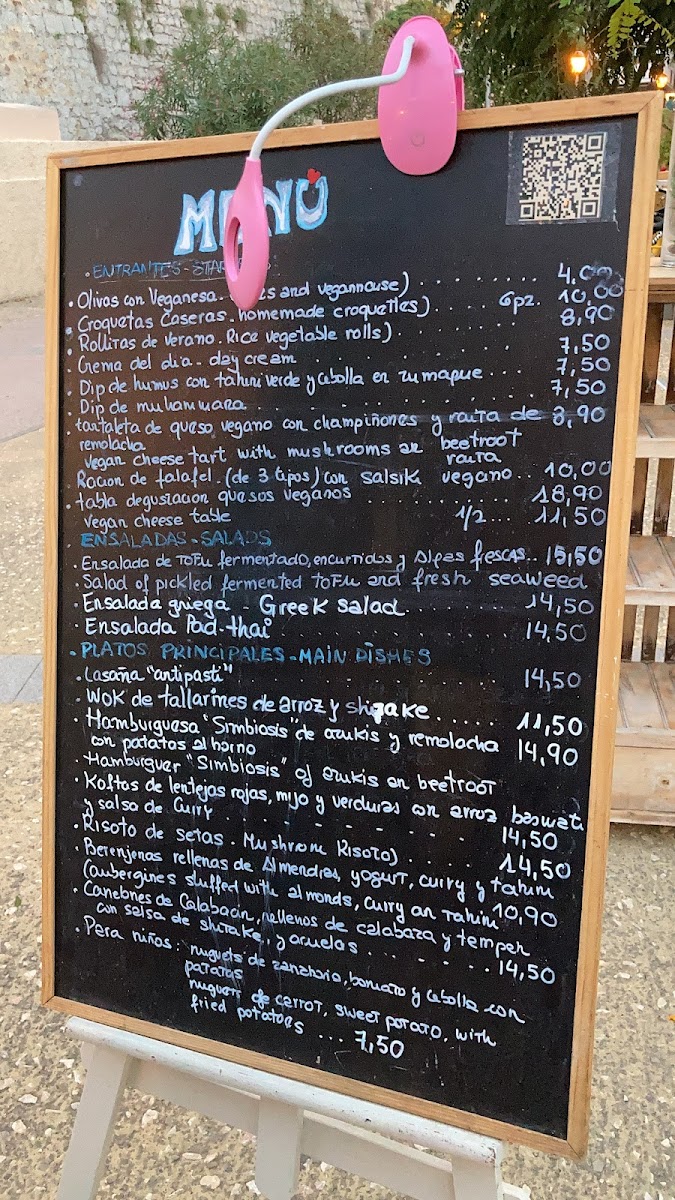 MENÚ
· ENTRANTES - STAR
· Olivas con Veganesa. and vegannause) ........ 4.00
· Croquetas Caseras. homemade croquettes) .. 6pz. 10,00
· Rollitos de verano. Rice vegetable rolls) ........ 8,90
· Crema del dia - day cream ........ 7,50
· Dip de humus con tahini verde y cebolla en zumaque ... 7,50
· Dip de muhammara ........ 7,50
· tartaleta de queso vegano con champiñones y raita de 8,90
remolacha
vegan cheese tart with mushrooms an beetroot
raita
· Racion de falafel. (de 3 tipos) con salsik vegano .. 10,00
· tabla degustacion quesos veganos ........ 18,90
vegan cheese table 1/2 ... 11,50
ENSALADAS - SALADS
· Ensalada de TOFU fermentado, encurtidos y Algas frescas .. 15,50
· Salad of pickled fermented TOFU and fresh seaweed
· Ensalada griega - Greek salad. ........ 14,50
· Ensalada Pad-thai ........ 14,50
· PLATOS PRINCIPALES - MAIN DISHES
· Lasaña "antipasti" ........ 14,50
· WOK de tallarines de arroz y shitake ...... 11,50
· Hamburguesa "Simbiosis" de azukis y remolacha 14,90
con patatas al horno
· Hamburguer "Simbiosis" of azukis an beetroot
· Koftas de lentejas rojas, mijo y verduras con arroz baswati
y salsa de curry ........ 14,50
· Risoto de setas. Mushroom Risoto) ........ 14,50
· Berenjenas rellenas de Almendras, yogurt, curry y tahini
(aubergines stuffed with almonds, curry an tahini 10,90
· Canelones de Calabacin, rellenos de calabaza y tempeh
con salsa de shitake, y acuelas ........ 14,50
· Para niños: nuguets de zanahoria, boniato y cebolla con
patatas
nuguett of carrot, sweet potato, with
fried potatoes ... 7,50